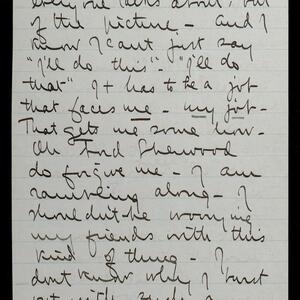 only she talks about, but
of the picture. - and I
know I can't just say
"I'll do this" - "I'll do
that" It has to be a job
that faces me - my job -
That gets me some how -
Oh Lord Sherwood
do forgive me - I am
rambling along - I
shouldn't be worrying
my friends with this
kind of thing - I
don't know why I
out with such